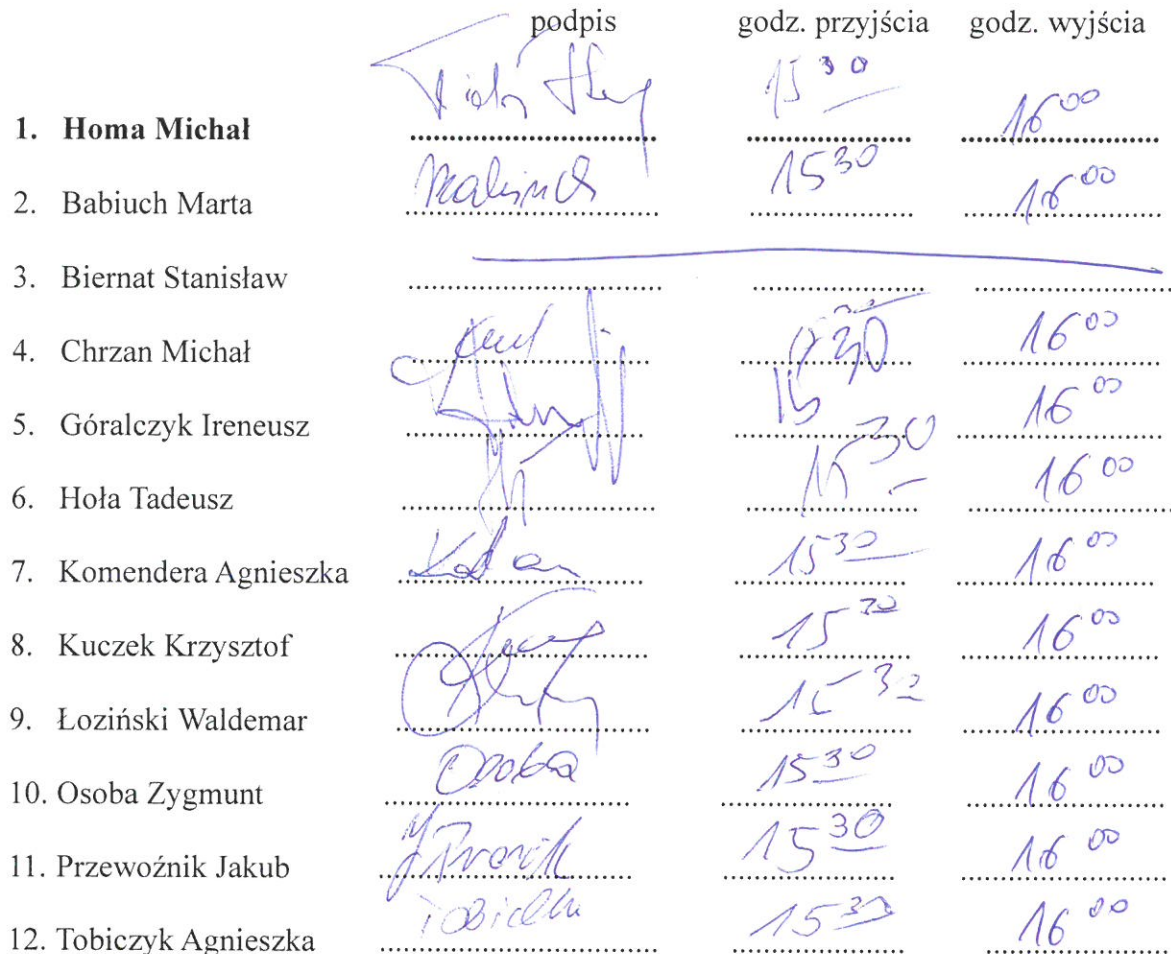 podpis godz. przyjścia godz. wyjścia
1. Homa Michał 15 30 16 00
2. Babiuch Marta 15 30 16 00
3. Biernat Stanisław
4. Chrzan Michał 16 00
5. Góralczyk Ireneusz 15 16 00
6. Hoła Tadeusz 15 30 16 00
7. Komendera Agnieszka 15 30 16 00
8. Kuczek Krzysztof 15 30 16 00
9. Łoziński Waldemar 15 30 16 00
10. Osoba Zygmunt Osoba 15 30 16 00
11. Przewoźnik Jakub 15 30 16 00
12. Tobiczyk Agnieszka 15 30 16 00